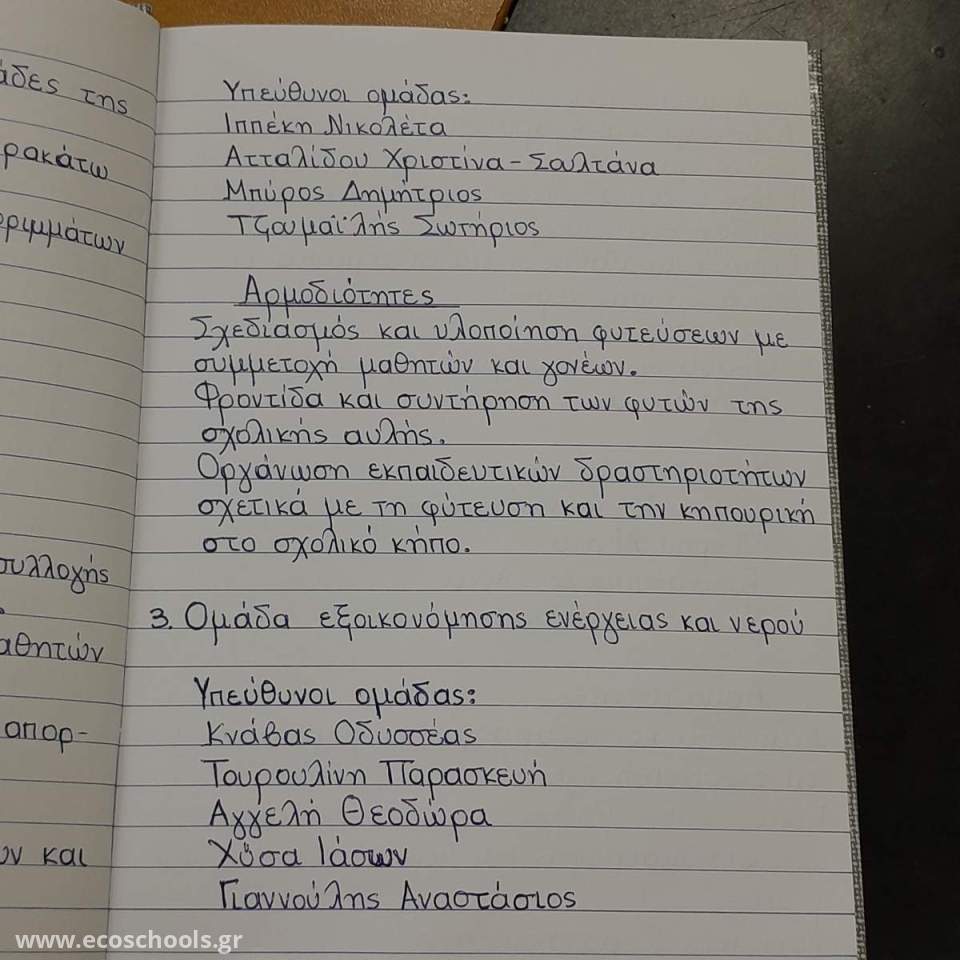 άδες της
ρακάτω
οριμμάτων
συλλογής
αθητών
απορ-
ων και
Υπεύθυνοι ομάδας:
Ιππέκη Νικολέτα
Ατταλίδου Χριστίνα-Σαλτάνα
Μπύρος Δημήτριος
Τζουμαϊλής Σωτήριος
Αρμοδιότητες
Σχεδιασμός και υλοποίηση φυτεύσεων με
συμμετοχή μαθητών και γονέων.
Φροντίδα και συντήρηση των φυτών της
σχολικής αυλής.
Οργάνωση εκπαιδευτικών δραστηριοτήτων
σχετικά με τη φύτευση και την κηπουρική
στο σχολικό κήπο.
3. Ομάδα εξοικονόμησης ενέργειας και νερού
Υπεύθυνοι ομάδας:
Κνάβας Οδυσσέας
Τουρουλίνη Παρασκευή
Αγγελή Θεοδώρα
Ιάσων
Γιαννούλης Αναστάσιος
www.ecoschools.gr